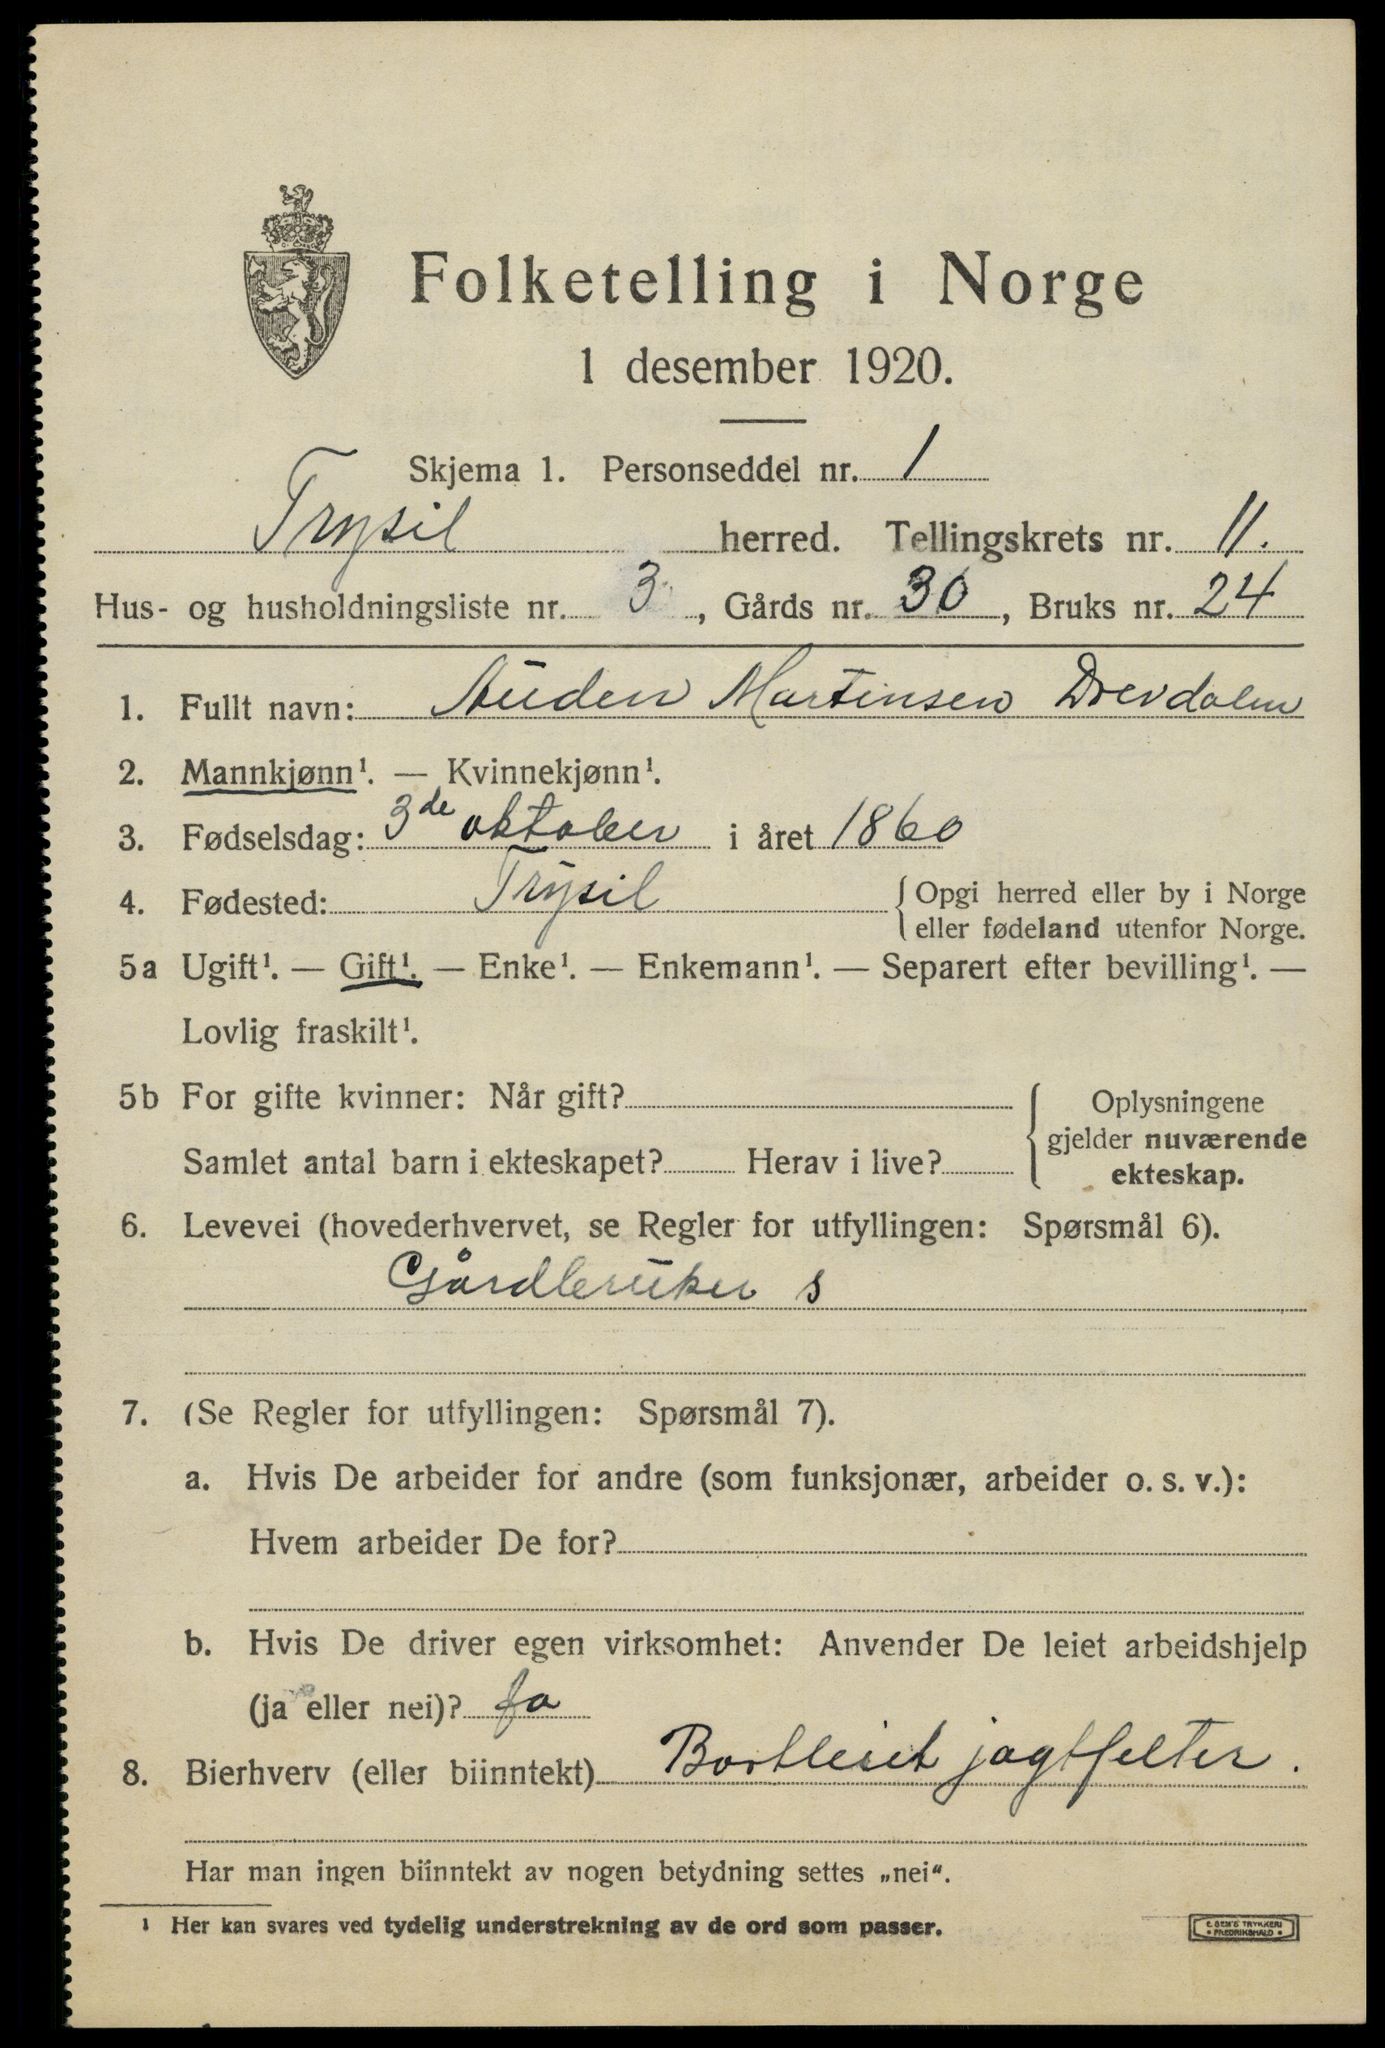 Folketelling i Norge
1 desember 1920.
Skjema 1. Personseddel nr. 1
Trysil herred. Tellingskrets nr. 11.
Hus- og husholdningsliste nr. 3, Gårds nr. 30, Bruks nr. 24
1. Fullt navn: Auden Martinsen Drevdalen
2. Mannkjønn¹. — Kvinnekjønn¹.
3. Fødselsdag: 3de oktober i året 1860
4. Fødested: Trysil { Opgi herred eller by i Norge
eller fødeland utenfor Norge.
5a Ugift¹. — Gift¹. — Enke¹. — Enkemann¹. — Separert efter bevilling¹. —
Lovlig fraskilt¹.
5b For gifte kvinner: Når gift? Oplysningene
gjelder nuværende
Samlet antal barn i ekteskapet? Herav i live? ekteskap.
6. Levevei (hovederhvervet, se Regler for utfyllingen: Spørsmål 6).
Gårdbruker s
7. (Se Regler for utfyllingen: Spørsmål 7).
a. Hvis De arbeider for andre (som funksjonær, arbeider o. s. v.):
Hvem arbeider De for?
b. Hvis De driver egen virksomhet: Anvender De leiet arbeidshjelp
(ja eller nei)? ja
8. Bierhverv (eller biinntekt) Bortleiet jagtfelter.
Har man ingen biinntekt av nogen betydning settes „nei“.
¹ Her kan svares ved tydelig understrekning av de ord som passer.
E. SEM'S TRYKKERI
• FREDRIKSHALD •